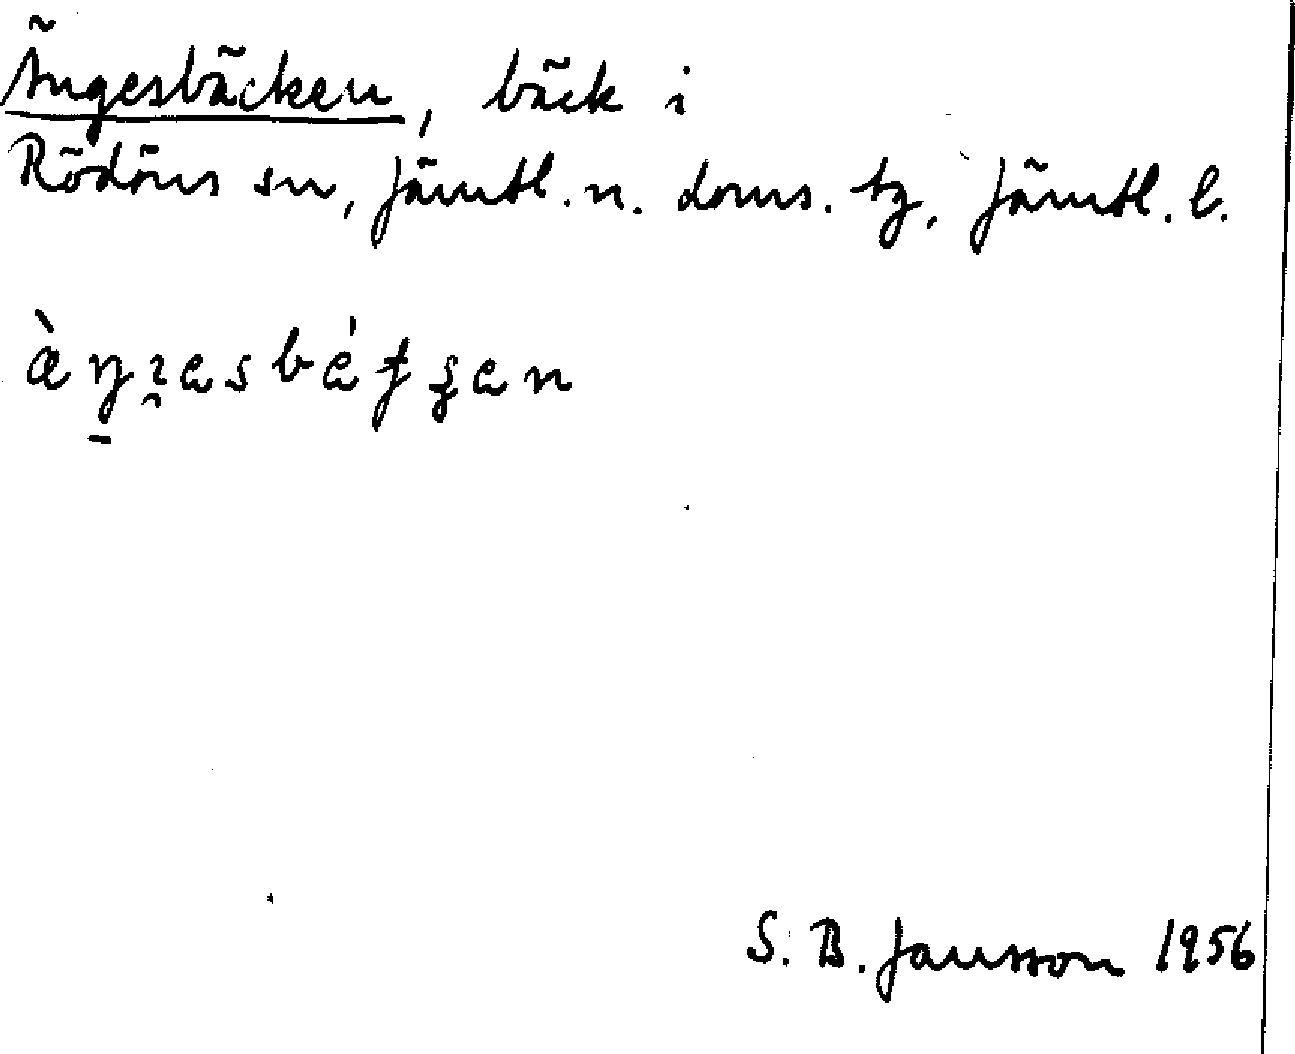 Ängesbäcken, bäck i
Rödöns sn, Jämtl. n. doms. tg, Jämtl. l.
S. B. Jansson 1956